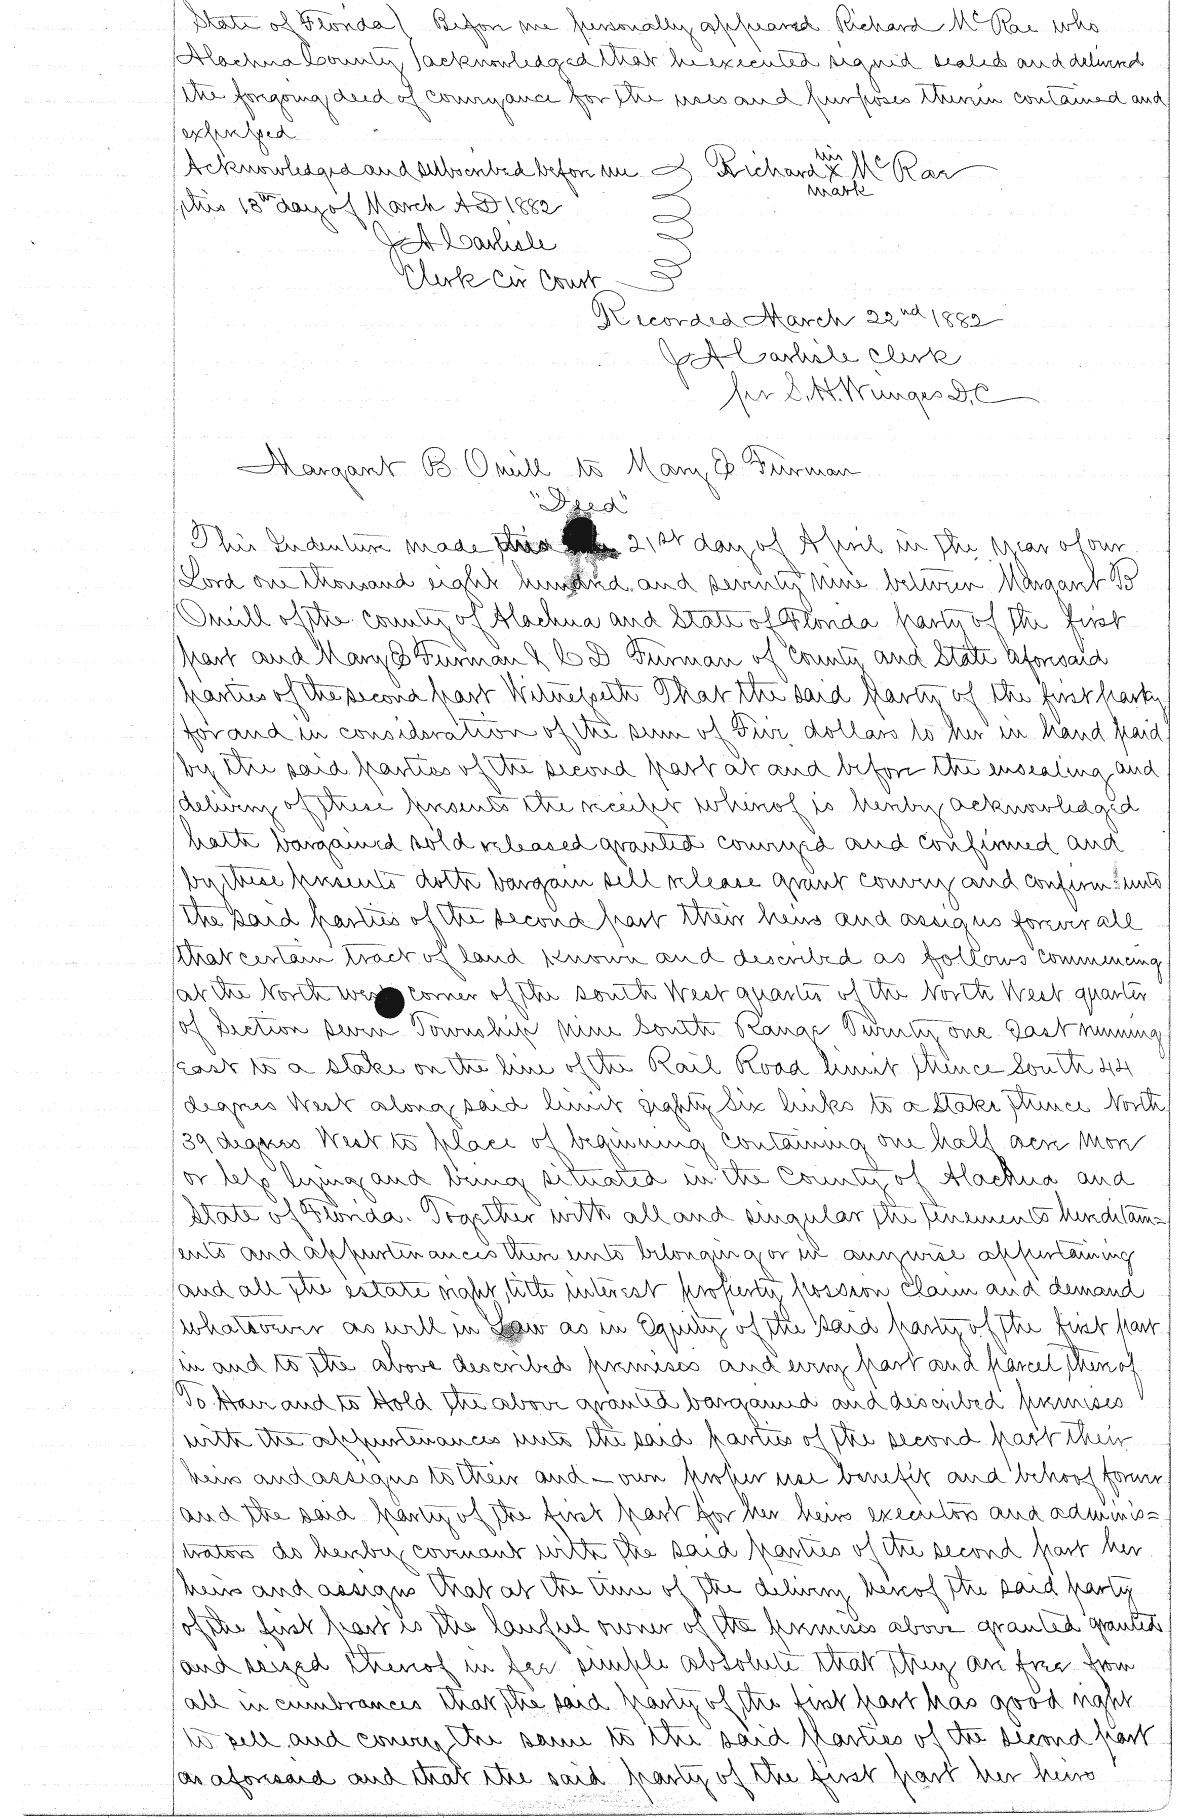 State of Florida ) Before me personally appeared Richard McRae who
Alachua County ) acknowledged that he executed signed sealed and delivered
the foregoing deed of conveyance for the uses and purposes therein contained and
expressed
Acknowledged and subscribed before me Richard his x McRae
mark
this 13th day of March AD 1882
J A Carlisle
Clerk Cir Court
Recorded March 22nd 1882
J A Carlisle Clerk
per S. H. Wienges D. C
Margaret B Oneill to Mary E Furman
"Deed"
This Indenture made this 21st day of April in the year of our
Lord one thousand eight hundred and seventy nine between Margaret B
Oneill of the county of Alachua and State of Florida party of the first
part and Mary E Furman & C D Furman of County and State aforesaid
parties of the second part Witnesseth That the said Party of the first party
for and in consideration of the sum of Five dollars to her in hand paid
by the said parties of the second part at and before the ensealing and
delivery of these presents the receipt whereof is hereby acknowledged
hath bargained sold released granted conveyed and confirmed and
by these presents doth bargain sell release grant convey and confirm unto
the said parties of the second part their heirs and assigns forever all
that certain tract of land known and described as follows commencing
at the North west corner of the south West quarter of the North West quarter
of Section seven Township nine South Range Twenty one East running
East to a stake on the line of the Rail Road limit thence South 44
degrees West along said limit eighty Six links to a Stake thence North
39 degrees West to place of beginning containing one half acre more
or less lying and being situated in the County of Alachua and
State of Florida. Together with all and singular the tenements heriditam=
ents and appurtenances there unto belonging or in anywise appertaining
and all the estate right, title interest property possion claim and demand
whatsoever as well in Law as in Equity of the said party of the first part
in and to the above described premises and every part and parcel thereof
To Have and to Hold the above granted bargained and described premises
with the appurtenances unto the said parties of the second part their
heirs and assigns to their and — own proper use benefit and behoof forever
and the said party of the first part for her heirs executors and adminis=
trators do hereby covenant with the said parties of the second part her
heirs and assigns that at the time of the delivery hereof the said party
of the first part is the lawful owner of the premises above granted granted
and seized thereof in fee simple absolute that they are free from
all incumbrances that the said party of the first part has good right
to sell and convey the same to the said parties of the second part
as aforesaid and that the said party of the first part her heirs